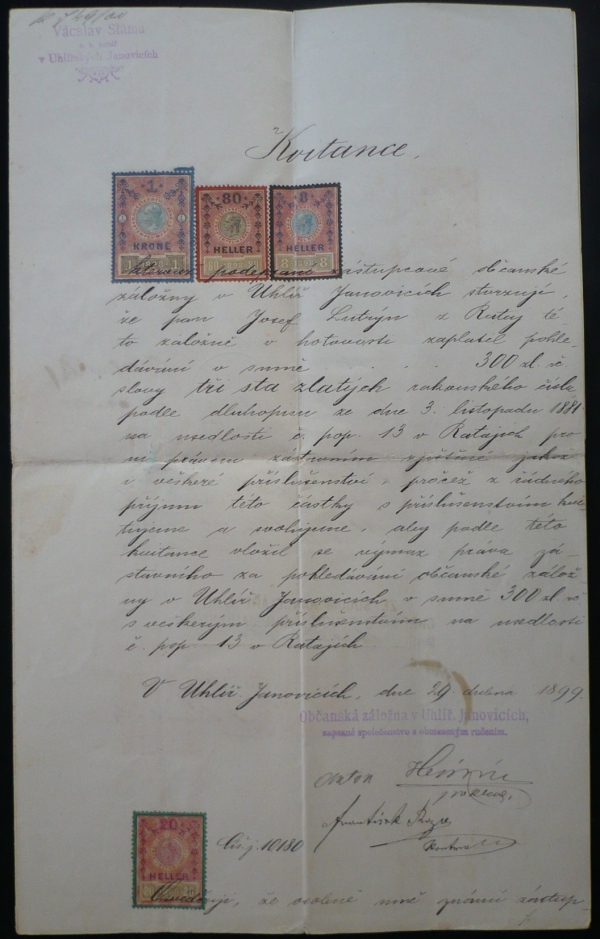 Václav Sláma
v Uhlířských Janovicích
Kvitance.
1
KRONE
80
HELLER
8
HELLER
podepsané zástupcové občanské
záložny v Uhlíř Janovicích stvrzují,
že pan Josef Lutrýn z Rataj té
to záložně v hotovosti zaplatil pohle
dávání v sumě . . . 300 zl. rč
slovy tři sta zlatých rakouského čísla
podle dluhopisu ze dne 3. listopadu 1881
na usedlosti č. pop. 13 v Ratajích pro
ni právem zástavním zjištěné jakož
i veškeré příslušenství, pročež z řádného
příjmu této částky s příslušenstvím kvi
tujeme a svolujeme, aby podle této
kvitance vložil se výmaz práva zá_
stavního za pohledávání občanské zálož
ny v Uhlíř Janovicích v sumě 300 zl. rč
s veškerým příslušenstvím na usedlosti
č. pop. 13 v Ratajích.
V Uhlíř. Janovicích, dne 29 dubna 1899.
Občanská záložna v Uhlíř. Janovicích,
zapsané společenstvo s obmezeným ručením.
Anton
František
Čís. j. 10180
20
HELLER
Potvrzuji, že osobně mně známí zástup_